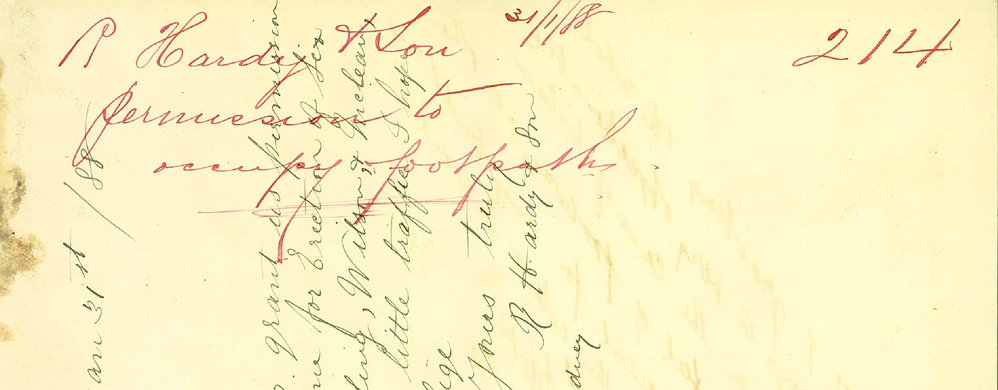 R Hardy & Son 31/1/88 214
permission to
occupy footpaths.
an 31st /88
grant us permission
me for Erection of six
ling, Wilson & McLean
little traffic I hope
ige
Yours truly
R Hardy & Son
dney